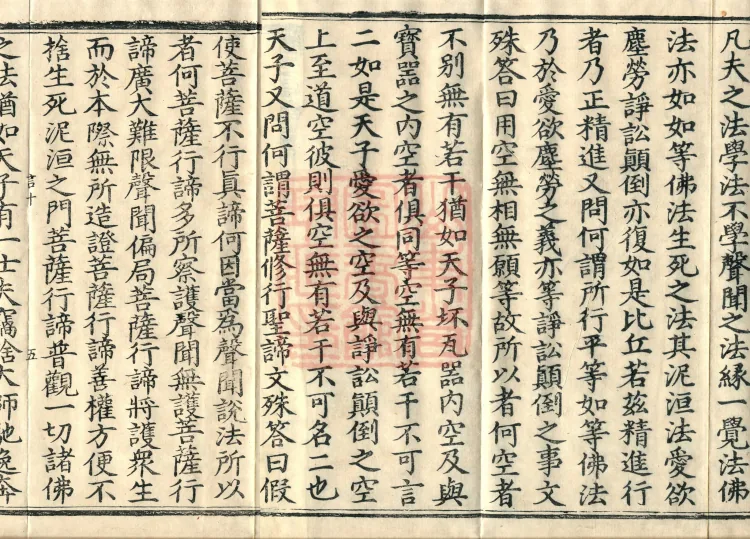 凡夫之法學法不學聲聞之法緣一覺法佛
法亦如如等佛法生死之法其泥洹法愛欲
塵勞諍訟顛倒亦復如是比丘若茲精進行
者乃正精進又問何謂所行平等如等佛法
乃於愛欲塵勞之義亦等諍訟顛倒之事文
殊答曰用空無相無願等故所以者何空者
不別無有若干猶如天子坏瓦器內空及與
寶器之內空者俱同等空無有若干不可言
二如是天子愛欲之空及與諍訟顛倒之空
上至道空彼則俱空無有若干不可名二也
天子又問何謂菩薩修行聖諦文殊答曰假
使菩薩不行真諦何因當為聲聞說法所以
者何菩薩行諦多所察護聲聞無護菩薩行
諦廣大難限聲聞偏局菩薩行諦將護眾生
而於本際無所造證菩薩行諦善權方便不
捨生死泥洹之門菩薩行諦普觀一切諸佛
言十
五
之法猶如天子有一士夫竊捨大師馳逸奔